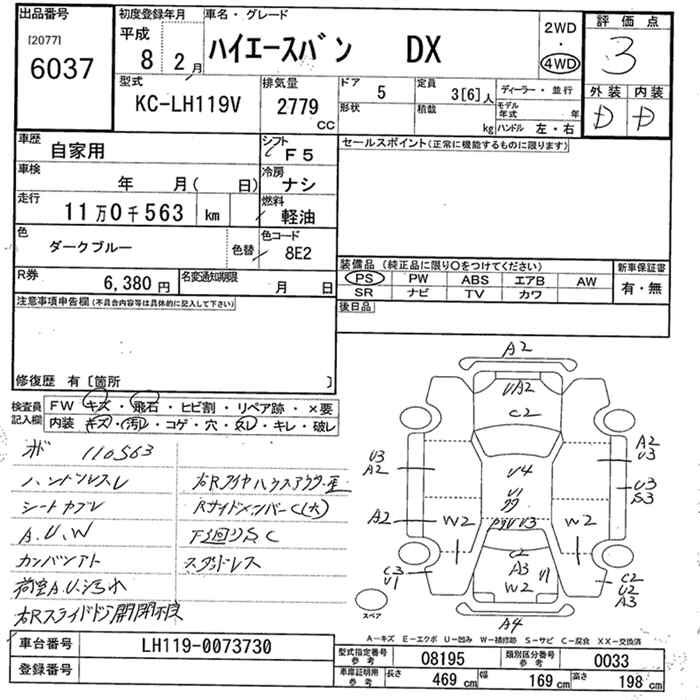 出品番号
[2077]
6037
初度登録年月
平成
8 2月
車名・グレード
ハイエースバン DX
2WD
・
4WD
評価点
3
外装 内装
D D
型式
KC-LH119V
排気量
2779
CC
ドア 5
形状
定員 3[6]人
積載 kg
ディーラー・並行
モデル年式 年
ハンドル 左・右
車歴
自家用
シフト
F5
車検
年 月( 日)
冷房
ナシ
走行
11万0千563 km
燃料
軽油
色
ダークブルー
色替
色コード
8E2
R券
6,380円
名変通知期限
月 日
セールスポイント(正常に機能するものに限ります)
装備品(純正品に限り○をつけてください)
PS PW ABS エアB AW
SR ナビ TV カワ
新車保証書
有・無
後日品
注意事項申告欄(不具合内容等は具体的に記入して下さい)
修復歴 有〔箇所 〕
検査員
記入欄
FW キズ・飛石・ヒビ割・リペア跡・×要
内装 キズ・汚レ・コゲ・穴・スレ・キレ・破レ
ボ 110563
ハンドルスレ
シートヤブレ
A.U.W
カンバンアト
荷室A.U.汚れ
右Rスライドドア開閉不良
右Rタイヤハウスアウター歪
RサイドメンバーC(大)
下廻りS.C
スタッドレス
A2
UA2
C2
U3
A2
A2
U3
U4
U3
S3
U1
A2
W2
U3
W2
C2
A3
U1
W2
C3
U1
C2
U2
A3
スペア
A4
A－キズ E－エクボ U－凹み W－補修跡 S－サビ C－腐食 XX－交換済
車台番号
LH119-0073730
登録番号
型式指定番号
参考
08195
類別区分番号
参考
0033
車庫証明用
参考
長さ 469 cm
幅 169 cm
高さ 198 cm